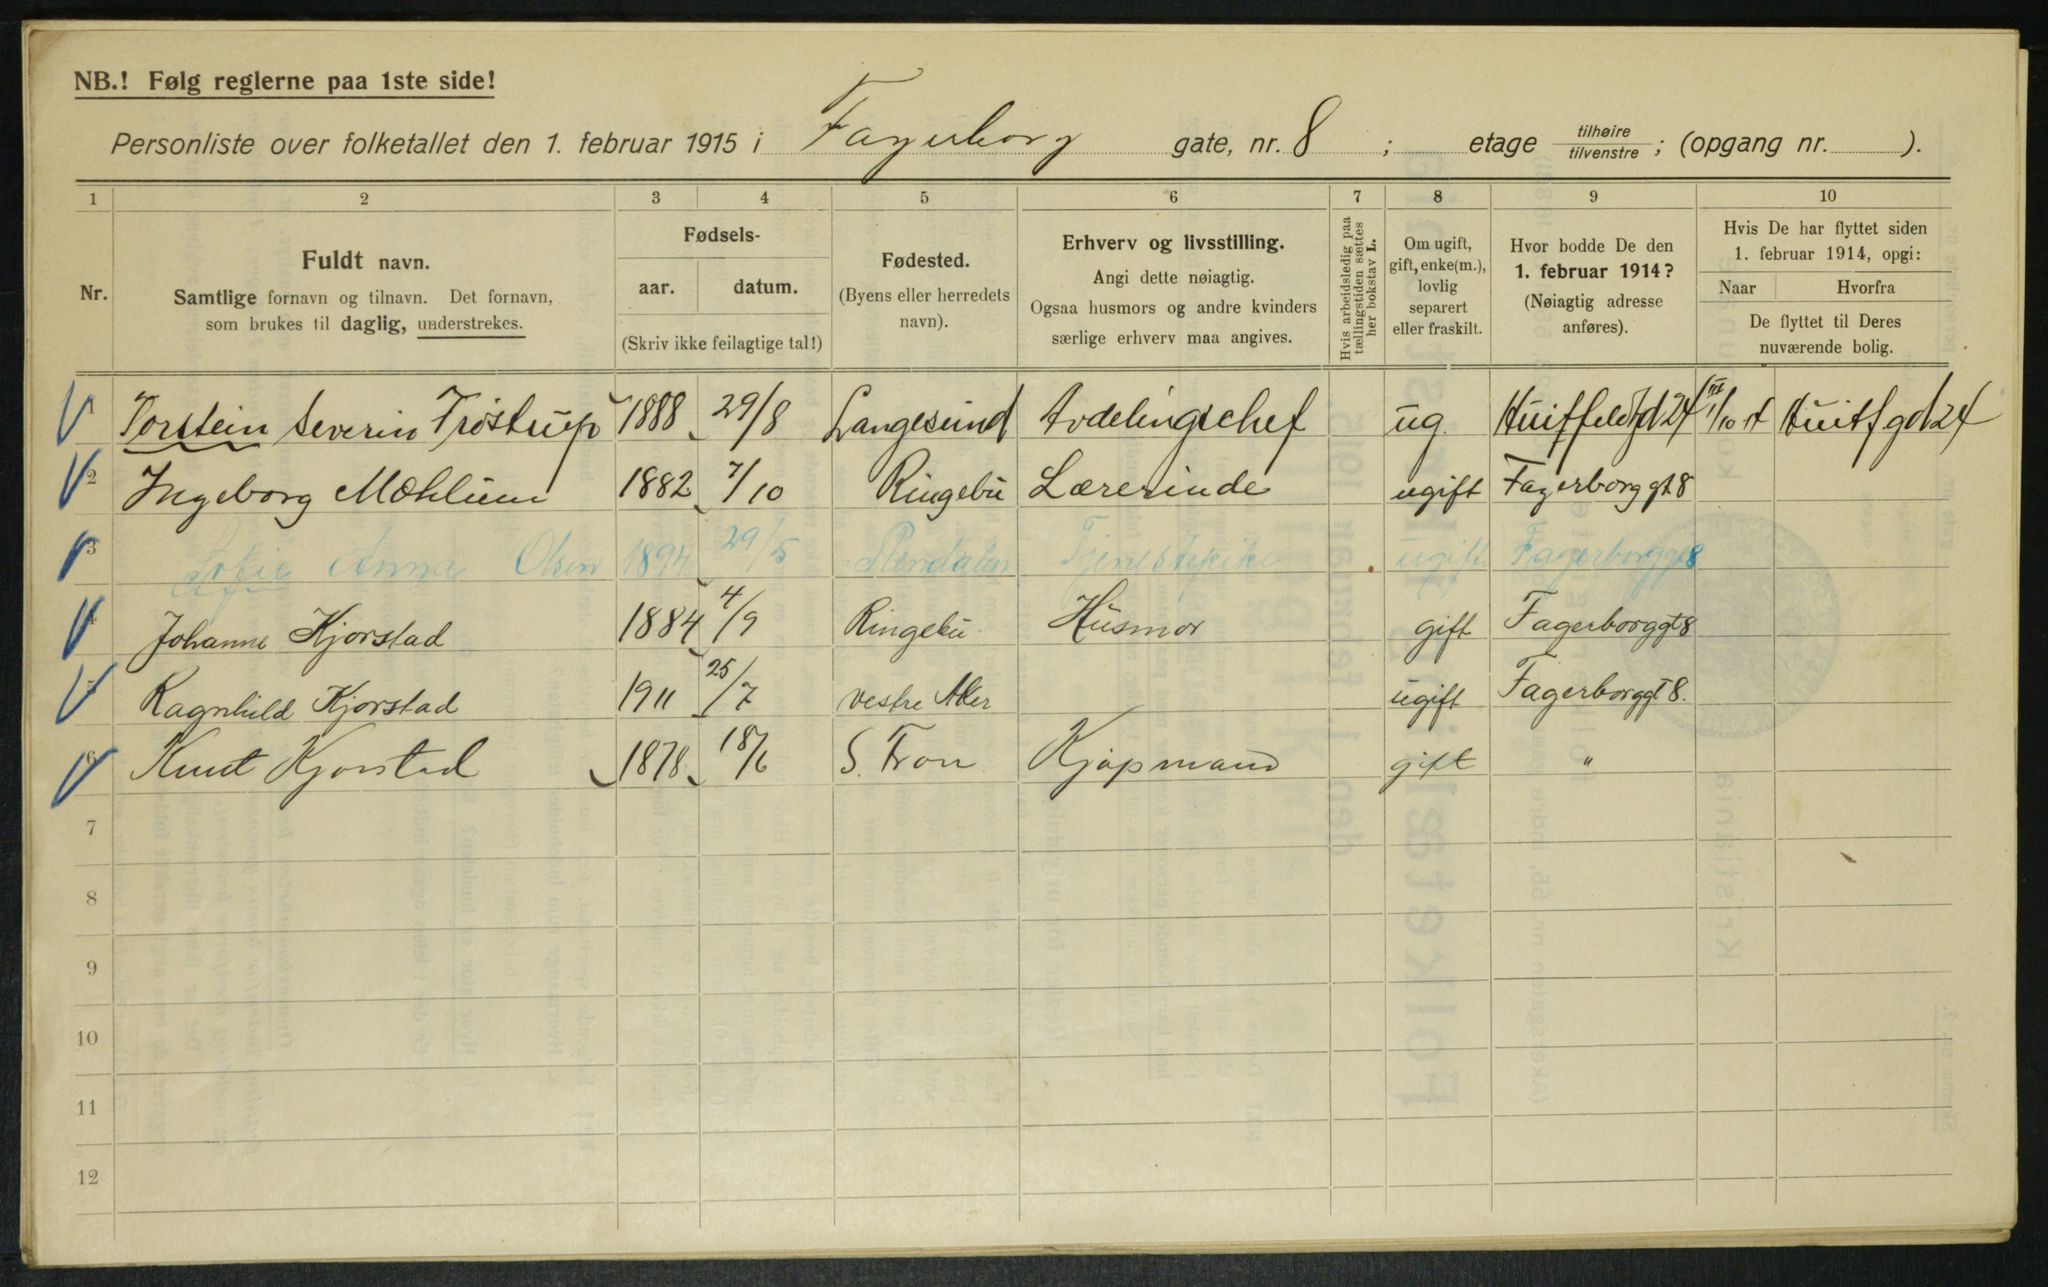 NB.! Følg reglerne paa 1ste side!
Personliste over folketallet den 1. februar 1915 i Fagerborg gate, nr. 8 ; etage tilhøire / tilvenstre ; (opgang nr. ).
1 2 3 4 5 6 7 8 9 10
Nr.
Fuldt navn.
Samtlige fornavn og tilnavn. Det fornavn,
som brukes til daglig, understrekes.
Fødsels-
aar. datum.
(Skriv ikke feilagtige tal!)
Fødested.
(Byens eller herredets
navn).
Erhverv og livsstilling.
Angi dette nøiagtig.
Ogsaa husmors og andre kvinders
særlige erhverv maa angives.
Hvis arbeidsledig paa
tællingstiden sættes
her bokstav L.
Om ugift,
gift, enke(m.),
lovlig
separert
eller fraskilt.
Hvor bodde De den
1. februar 1914?
(Nøiagtig adresse
anføres).
Hvis De har flyttet siden
1. februar 1914, opgi:
Naar Hvorfra
De flyttet til Deres
nuværende bolig.
1 Torstein Severin Trøstrup 1888 29/8 Langesund Avdelingschef ug. 1/10 14 Huitf gd 24
2 Ingeborg Mæhlum 1882 7/10 Ringebu Lærerinde ugift Fagerborggt 8
3 Sofie Anna Olsen 1894 29/5 Rendalen Tjenestepike ugift Fagerborggt 8
4 Johanne Kjorstad 1884 4/9 Ringebu Husmor gift Fagerborggt 8
5 Ragnhild Kjorstad 1911 25/7 vestre Aker ugift Fagerborggt 8.
6 Knut Kjorstad 1878 18/6 S. Fron Kjøpmand gift "
7
8
9
10
11
12